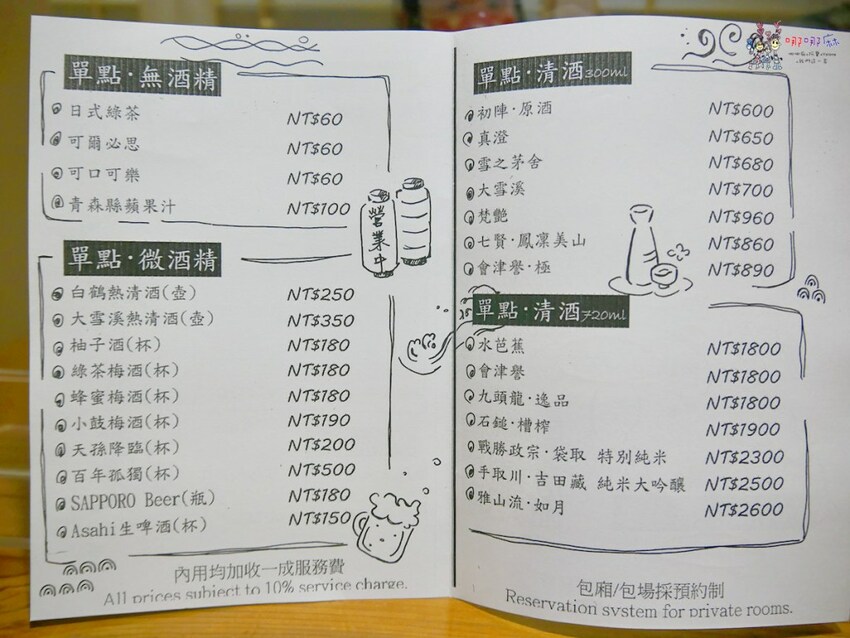 單點·無酒精
日式綠茶 NT$60
可爾必思 NT$60
可口可樂 NT$60
青森縣蘋果汁 NT$100
營業中
單點·微酒精
白鶴熱清酒(壺) NT$250
大雪溪熱清酒(壺) NT$350
柚子酒(杯) NT$180
綠茶梅酒(杯) NT$180
蜂蜜梅酒(杯) NT$180
小鼓梅酒(杯) NT$190
天孫降臨(杯) NT$200
百年孤獨(杯) NT$500
SAPPORO Beer(瓶) NT$180
Asahi生啤酒(杯) NT$150
內用均加收一成服務費
All prices subject to 10% service charge.
單點·清酒300ml
初陣·原酒 NT$600
真澄 NT$650
雪之茅舍 NT$680
大雪溪 NT$700
梵艷 NT$960
七賢·鳳凜美山 NT$860
會津譽·極 NT$890
單點·清酒720ml
水芭蕉 NT$1800
會津譽 NT$1800
九頭龍·逸品 NT$1800
石鎚·槽榨 NT$1900
戰勝政宗·袋取 特別純米 NT$2300
手取川·吉田藏 純米大吟釀 NT$2500
雅山流·如月 NT$2600
包廂/包場採預約制
Reservation system for private rooms.